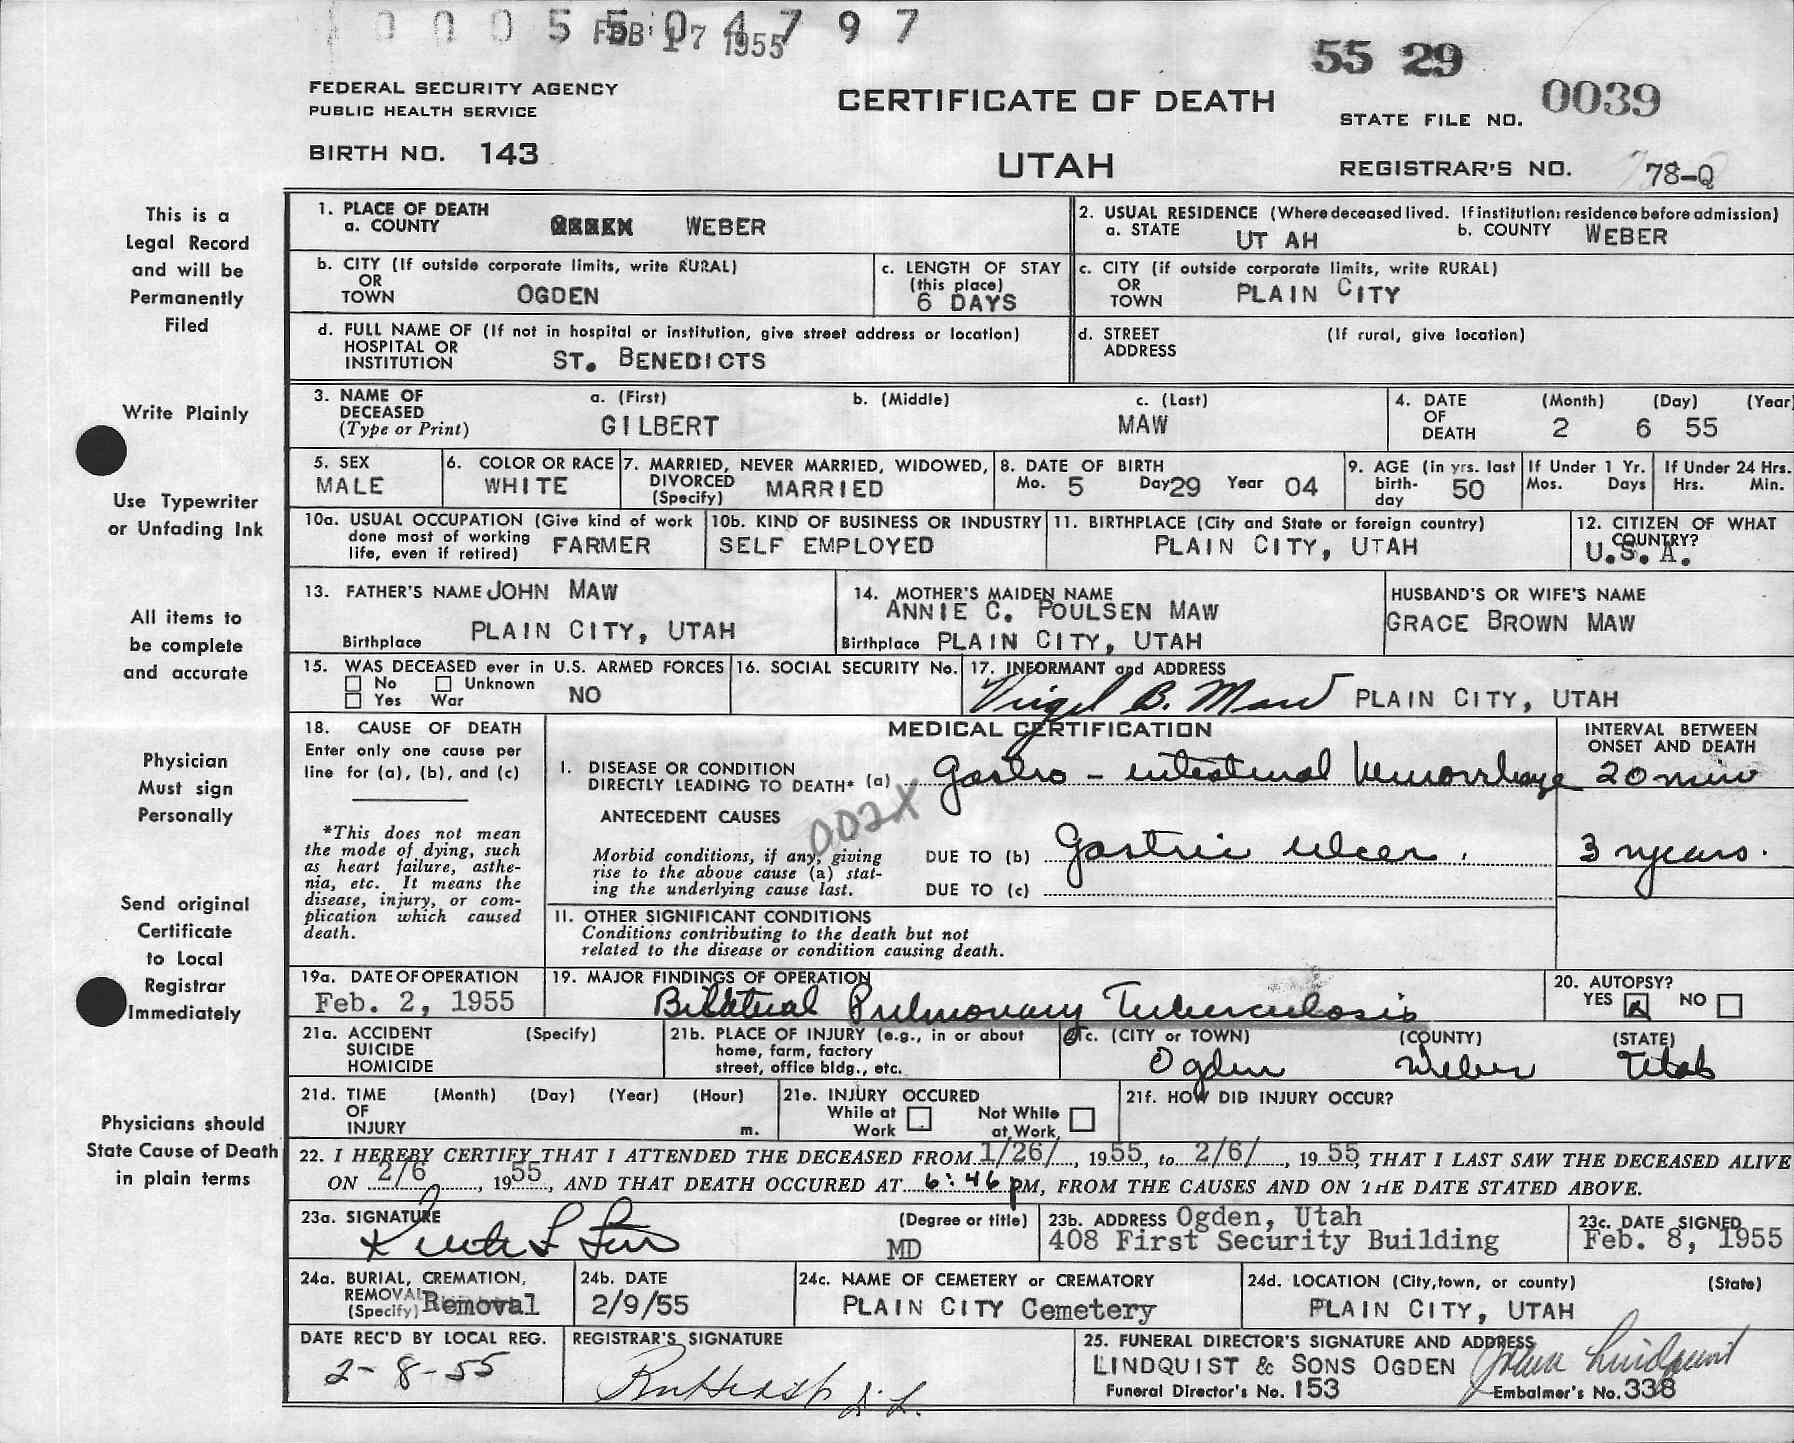 0 0 0 5 5 0 4 7 9 7
FEB 17 1955
55 29
FEDERAL SECURITY AGENCY
PUBLIC HEALTH SERVICE
CERTIFICATE OF DEATH
STATE FILE NO. 0039
BIRTH NO. 143
UTAH
REGISTRAR'S NO. 78-Q
This is a
Legal Record
and will be
Permanently
Filed
Write Plainly
Use Typewriter
or Unfading Ink
All items to
be complete
and accurate
Physician
Must sign
Personally
Send original
Certificate
to Local
Registrar
Immediately
Physicians should
State Cause of Death
in plain terms
1. PLACE OF DEATH
a. COUNTY WEBER
2. USUAL RESIDENCE (Where deceased lived. If institution: residence before admission)
a. STATE UT AH b. COUNTY WEBER
b. CITY (If outside corporate limits, write RURAL)
OR
TOWN OGDEN
c. LENGTH OF STAY
(this place)
6 DAYS
c. CITY (if outside corporate limits, write RURAL)
OR
TOWN PLAIN CITY
d. FULL NAME OF (If not in hospital or institution, give street address or location)
HOSPITAL OR
INSTITUTION ST. BENEDICTS
d. STREET (If rural, give location)
ADDRESS
3. NAME OF a. (First) b. (Middle) c. (Last)
DECEASED
(Type or Print) GILBERT MAW
4. DATE (Month) (Day) (Year
OF
DEATH 2 6 55
5. SEX
MALE
6. COLOR OR RACE
WHITE
7. MARRIED, NEVER MARRIED, WIDOWED,
DIVORCED
(Specify) MARRIED
8. DATE OF BIRTH
Mo. 5 Day 29 Year 04
9. AGE (in yrs. last
birth-
day 50
If Under 1 Yr.
Mos. Days
If Under 24 Hrs.
Hrs. Min.
10a. USUAL OCCUPATION (Give kind of work
done most of working
life, even if retired) FARMER
10b. KIND OF BUSINESS OR INDUSTRY
SELF EMPLOYED
11. BIRTHPLACE (City and State or foreign country)
PLAIN CITY, UTAH
12. CITIZEN OF WHAT
COUNTRY?
U.S.A.
13. FATHER'S NAME JOHN MAW
Birthplace PLAIN CITY, UTAH
14. MOTHER'S MAIDEN NAME
ANNIE C. POULSEN MAW
Birthplace PLAIN CITY, UTAH
HUSBAND'S OR WIFE'S NAME
GRACE BROWN MAW
15. WAS DECEASED ever in U.S. ARMED FORCES
No Unknown
Yes War NO
16. SOCIAL SECURITY No.
17. INFORMANT and ADDRESS
Virgel B. Maw PLAIN CITY, UTAH
18. CAUSE OF DEATH
Enter only one cause per
line for (a), (b), and (c)
*This does not mean
the mode of dying, such
as heart failure, asthe-
nia, etc. It means the
disease, injury, or com-
plication which caused
death.
MEDICAL CERTIFICATION
INTERVAL BETWEEN
ONSET AND DEATH
I. DISEASE OR CONDITION
DIRECTLY LEADING TO DEATH* (a) Gastro - intestinal hemorrhage 20 min
002X
ANTECEDENT CAUSES
Morbid conditions, if any, giving
rise to the above cause (a) stat-
ing the underlying cause last.
DUE TO (b) Gastric ulcer. 3 years.
DUE TO (c)
II. OTHER SIGNIFICANT CONDITIONS
Conditions contributing to the death but not
related to the disease or condition causing death.
19a. DATE OF OPERATION
Feb. 2, 1955
19. MAJOR FINDINGS OF OPERATION
Bilateral Pulmonary Tuberculosis
20. AUTOPSY?
YES X NO
21a. ACCIDENT (Specify)
SUICIDE
HOMICIDE
21b. PLACE OF INJURY (e.g., in or about
home, farm, factory
street, office bldg., etc.
c. (CITY or TOWN) (COUNTY) (STATE)
Ogden Weber Utah
21d. TIME (Month) (Day) (Year) (Hour)
OF
INJURY m.
21e. INJURY OCCURED
While at Work Not While at Work
21f. HOW DID INJURY OCCUR?
22. I HEREBY CERTIFY THAT I ATTENDED THE DECEASED FROM 1/26/, 1955, to 2/6/, 1955, THAT I LAST SAW THE DECEASED ALIVE
ON 2/6, 1955, AND THAT DEATH OCCURED AT 6:46 PM, FROM THE CAUSES AND ON THE DATE STATED ABOVE.
23a. SIGNATURE (Degree or title)
MD
23b. ADDRESS Ogden, Utah
408 First Security Building
23c. DATE SIGNED
Feb. 8, 1955
24a. BURIAL, CREMATION,
REMOVAL
(Specify) Removal
24b. DATE
2/9/55
24c. NAME OF CEMETERY or CREMATORY
PLAIN CITY Cemetery
24d. LOCATION (City, town, or county) (State)
PLAIN CITY, UTAH
DATE REC'D BY LOCAL REG.
2-8-55
REGISTRAR'S SIGNATURE
25. FUNERAL DIRECTOR'S SIGNATURE AND ADDRESS
LINDQUIST & SONS OGDEN John Lindquist
Funeral Director's No. 153 Embalmer's No. 338